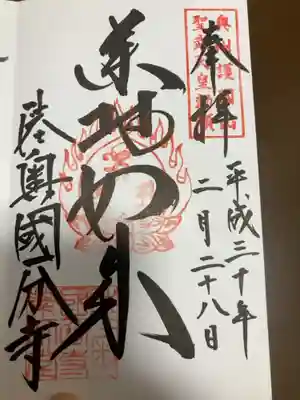 奉拝
平成三十年
二月二十八日
薬師如来
陸奥國分寺